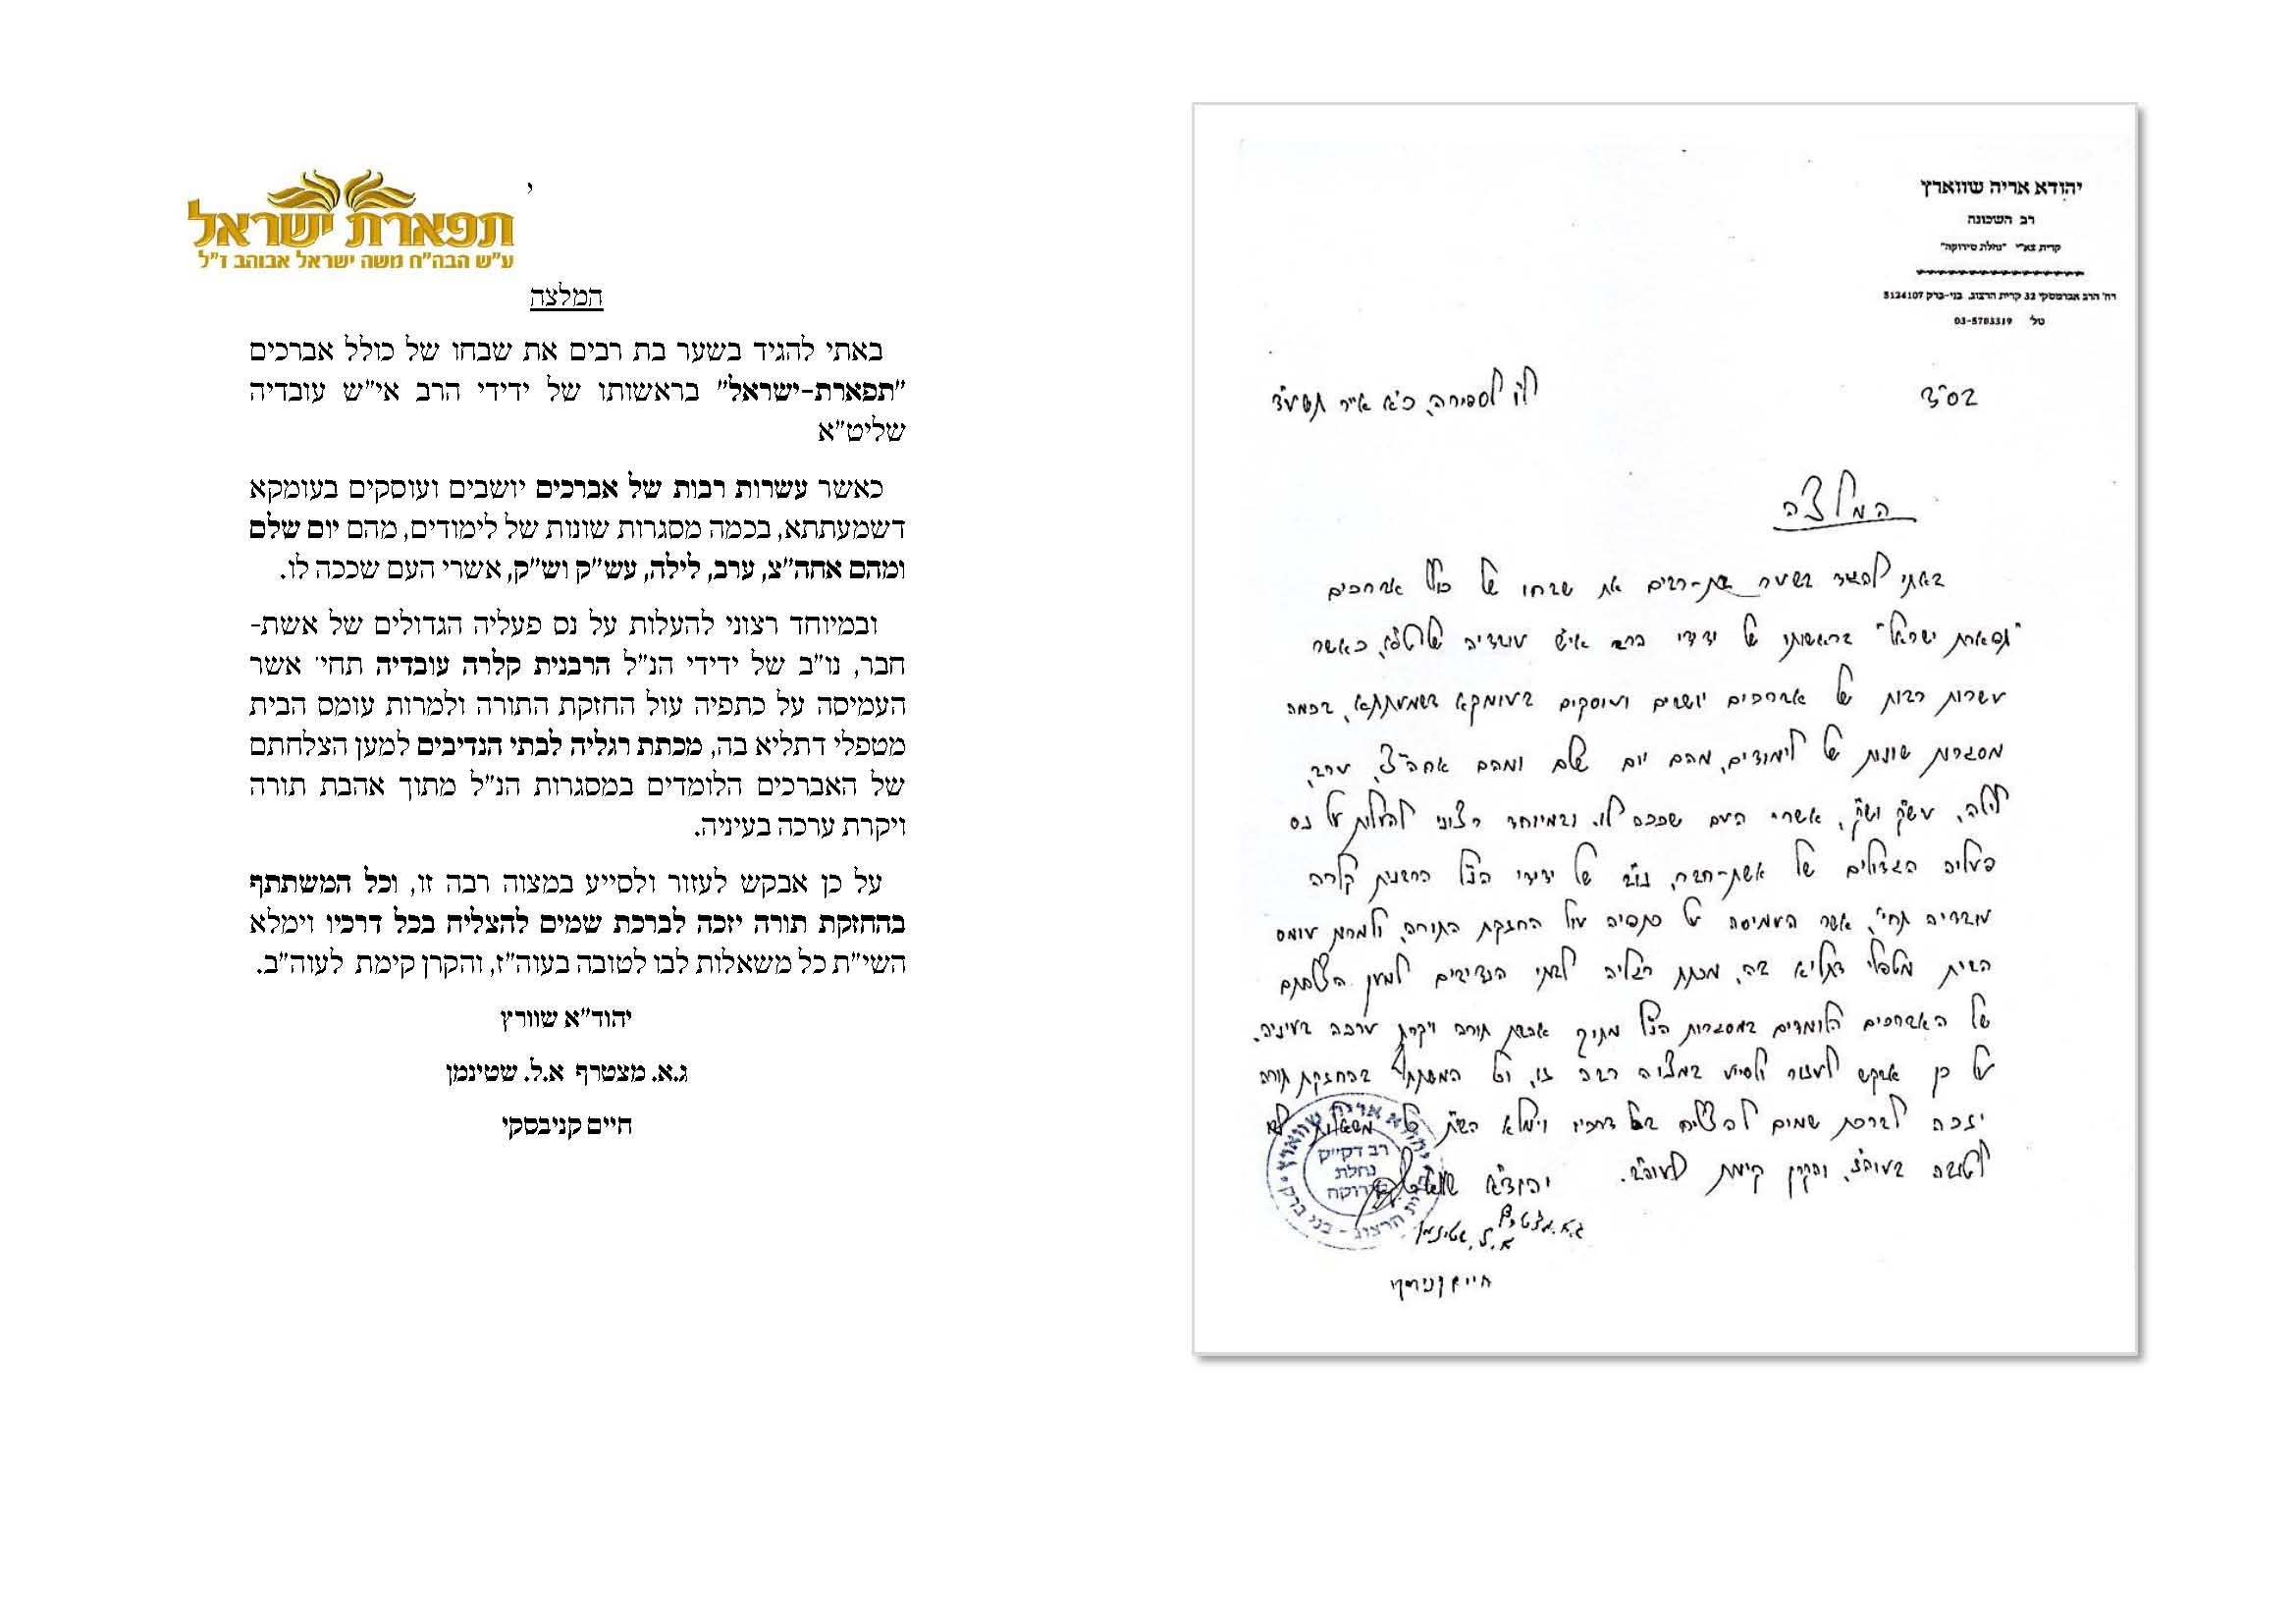 יהודא אריה שווארץ
רב השכונה
קרית צאי "נחלת סירוקה"
רח' הרב אברמסקי 32 קרית הרצוג, בני-ברק 5124107
טל' 03-5703319
בס"ד
לספירה, כ"א אייר תשע"ד
המלצה
באתי להגיד בשער בת-רבים את שבחו של כולל אברכים
"תפארת ישראל" בראשותו של ידידי הרב אי"ש עובדיה שליט"א, כאשר
עשרות רבות של אברכים יושבים ועוסקים בעומקא דשמעתתא, בכמה
מסגרות שונות של לימודים, מהם יום שלם ומהם אחה"צ, ערב,
לילה, עש"ק וש"ק, אשרי העם שככה לו. ובמיוחד רצוני להעלות על נס
פעליה הגדולים של אשת-חבר, נו"ב של ידידי הנ"ל הרבנית קלרה
עובדיה תחי', אשר העמיסה על כתפיה עול החזקת התורה, ולמרות עומס
הבית מטפלי דתליא בה, מכתת רגליה לבתי הנדיבים למען הצלחתם
של האברכים הלומדים במסגרות הנ"ל מתוך אהבת תורה ויקרת ערכה בעיניה.
על כן אבקש לעזור ולסייע במצוה רבה זו, וכל המשתתף בהחזקת תורה
יזכה לברכת שמים להצליח בכל דרכיו וימלא השי"ת כל משאלות לבו
לטובה בעוה"ז, והקרן קימת לעוה"ב.
יהוד"א שווארץ
ג.א. מצטרף
א.ל. שטינמן
חיים קניבסקי
יהודא אריה שווארץ
רב דק"ק
נחלת
סירוקה
קרית הרצוג - בני ברק
תפארת ישראל
ע"ש הבה"ח משה ישראל אבוהב ז"ל
י
המלצה
באתי להגיד בשער בת רבים את שבחו של כולל אברכים
"תפארת-ישראל" בראשותו של ידידי הרב אי"ש עובדיה
שליט"א
כאשר עשרות רבות של אברכים יושבים ועוסקים בעומקא
דשמעתתא, בכמה מסגרות שונות של לימודים, מהם יום שלם
ומהם אחה"צ, ערב, לילה, עש"ק וש"ק, אשרי העם שככה לו.
ובמיוחד רצוני להעלות על נס פעליה הגדולים של אשת-
חבר, נו"ב של ידידי הנ"ל הרבנית קלרה עובדיה תחי' אשר
העמיסה על כתפיה עול החזקת התורה ולמרות עומס הבית
מטפלי דתליא בה, מכתת רגליה לבתי הנדיבים למען הצלחתם
של האברכים הלומדים במסגרות הנ"ל מתוך אהבת תורה
ויקרת ערכה בעיניה.
על כן אבקש לעזור ולסייע במצוה רבה זו, וכל המשתתף
בהחזקת תורה יזכה לברכת שמים להצליח בכל דרכיו וימלא
השי"ת כל משאלות לבו לטובה בעוה"ז, והקרן קימת לעוה"ב.
יהוד"א שוורץ
ג.א. מצטרף א.ל. שטינמן
חיים קניבסקי